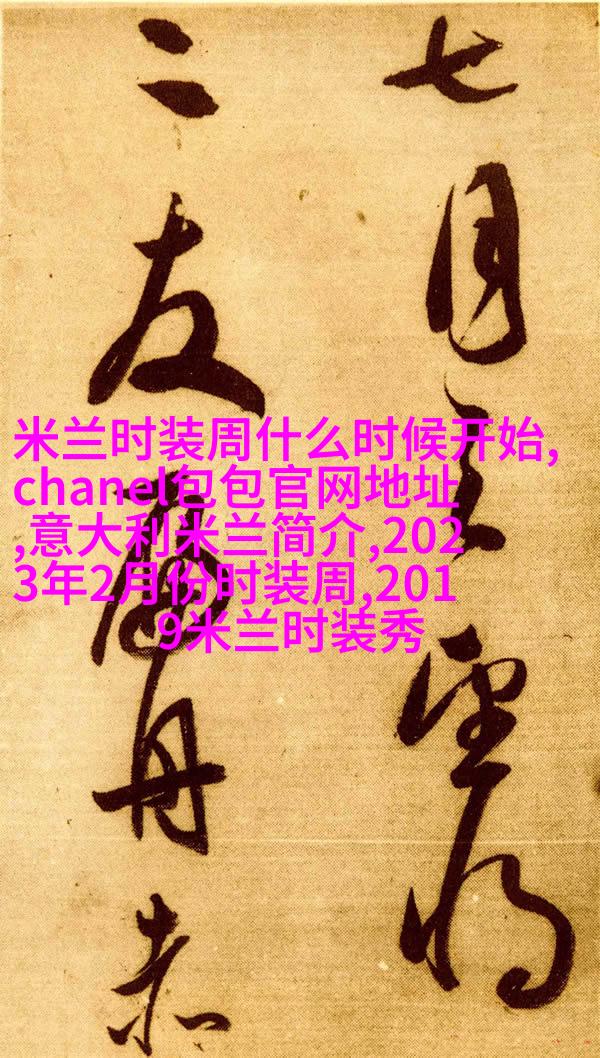 七月望将
二友扁舟赤
米兰时装周什么时候开始,
chanel包包官网地址
,意大利米兰简介,202
3年2月份时装周,201
9米兰时装秀